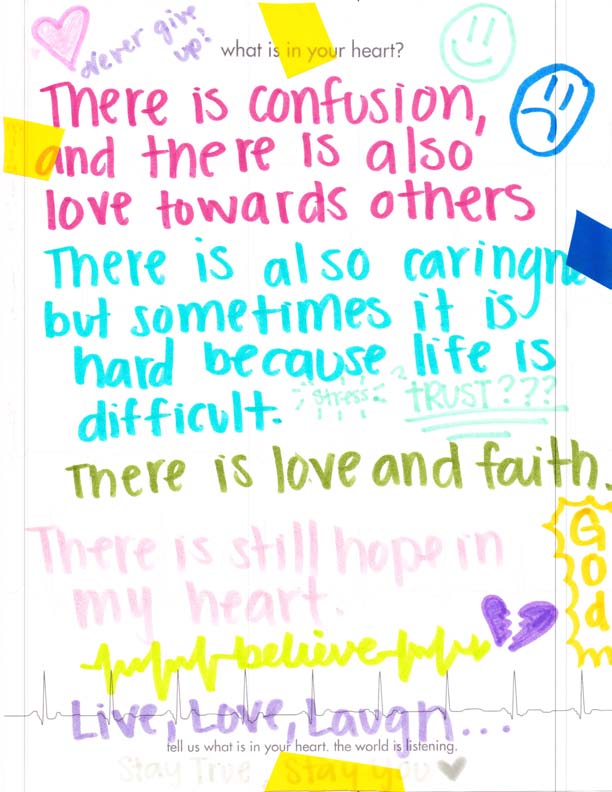 Never give up!
what is in your heart?
There is confusion,
and there is also
love towards others
There is also caringne
but sometimes it is
hard because life is
difficult.
stress
TRUST???
There is love and faith.
God
There is still hope in
my heart.
believe
Live, Love, Laugh...
tell us what is in your heart. the world is listening.
Stay True, Stay You